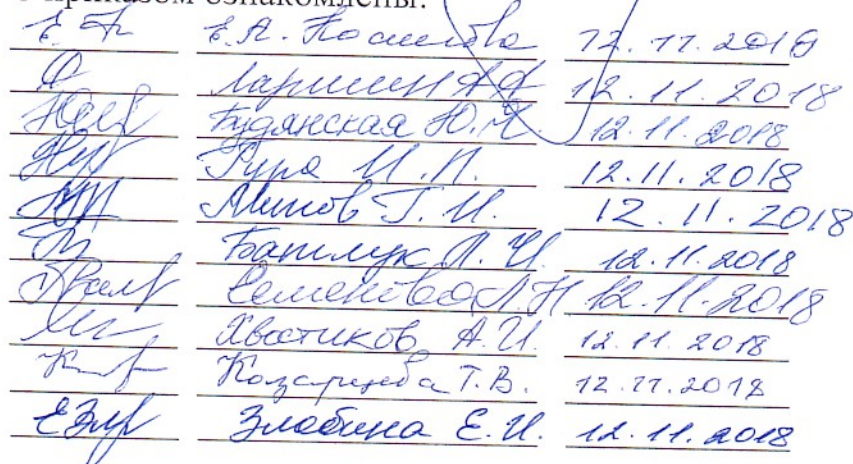 приказом ознакомлены:
Е.А. 12.11.2018
Ларшин А.А 12.11.2018
Будянская Ю.М 12.11.2018
Рура И.П. 12.11.2018
Аминов Т.И. 12.11.2018
Батлук Л.И. 12.11.2018
Семенова Л.Н 12.11.2018
Хвостиков А.И. 12.11.2018
Т.В. 12.11.2018
Злобина Е.И. 12.11.2018